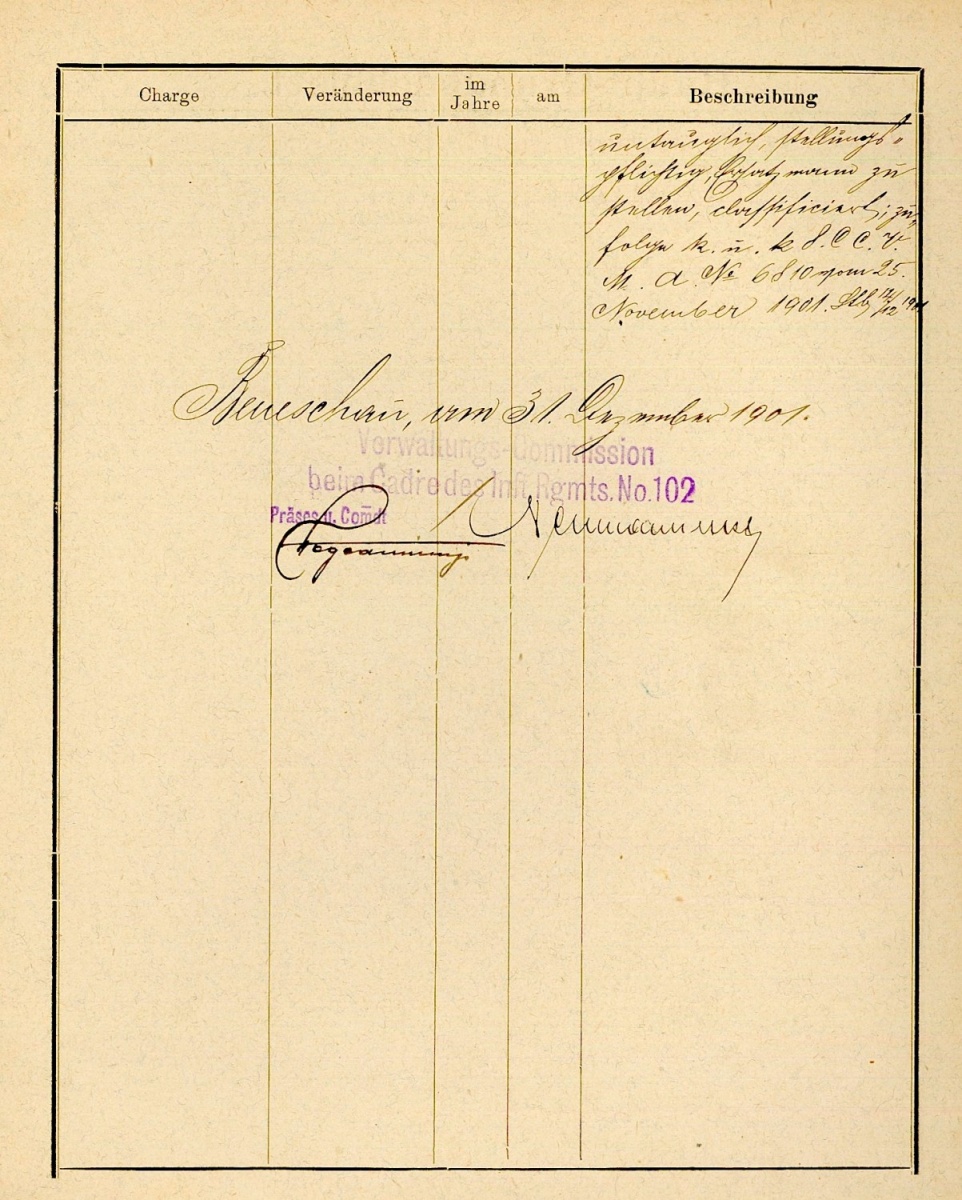 Charge Veränderung im Jahre am Beschreibung
untauglich, stellungs-
pflichtig, Ersatzmann zu
stellen, classificiert; zu-
folge k. u. k 8. C C. V.
M. A. No 6810 vom 25.
November 1901. Stb. 12/12 1901
Beneschau, am 31. Dezember 1901.
Verwaltungs-Commission
beim Cadre des Inft Rgmts. No. 102
Präses u. Comdt